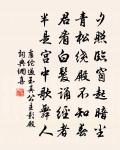 夕照臨窗起暗塵
青松繞殿不知春
君看白髮誦經者
半是宮中歌舞人
盧綸過玉真公主影殿
詞典網